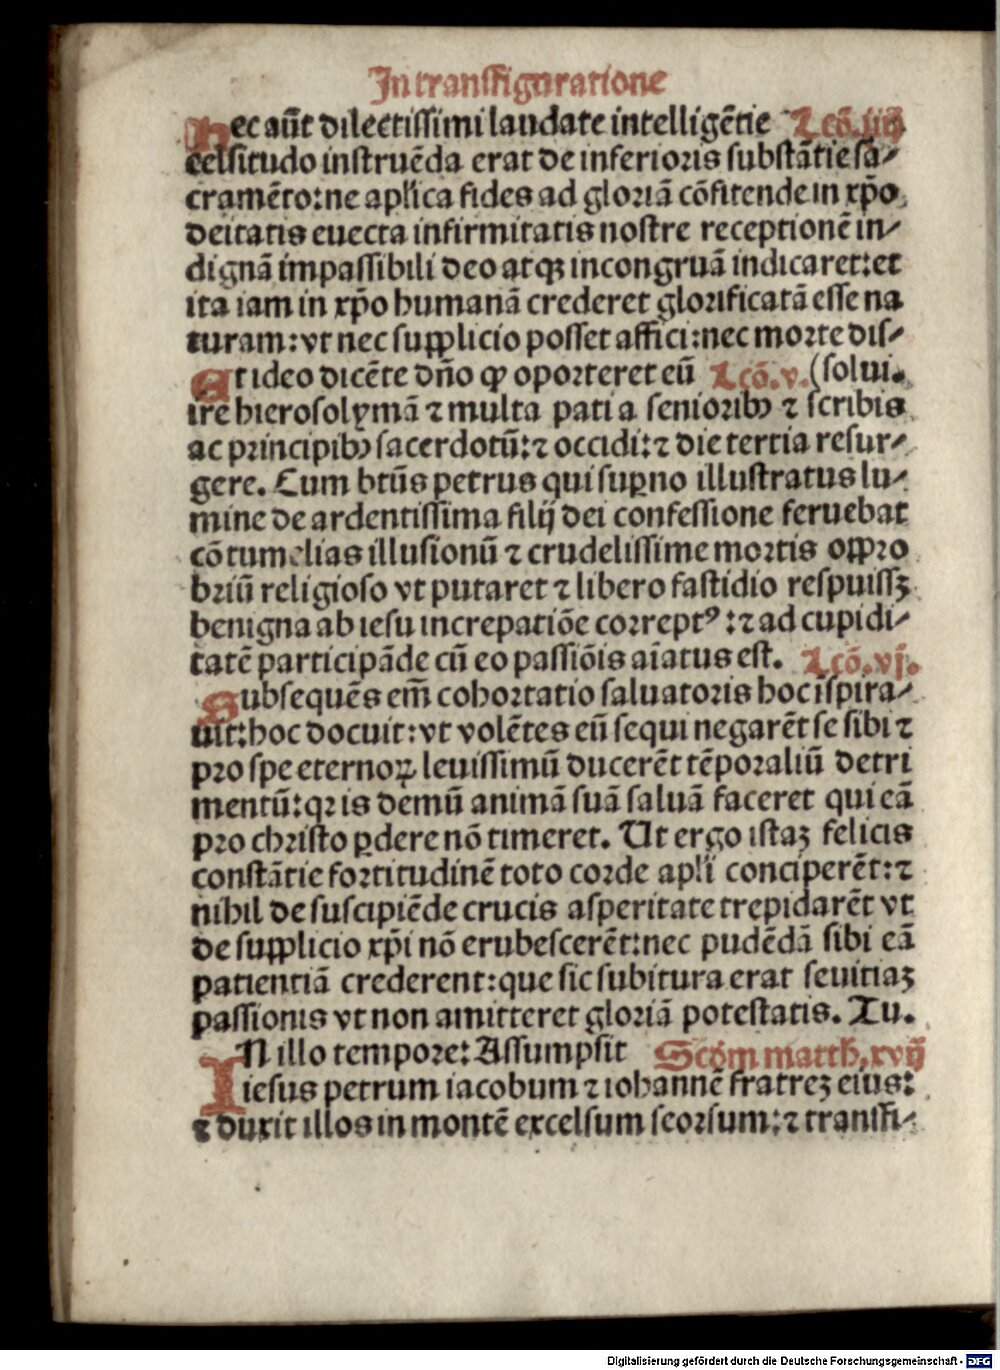 In transfiguratione
Hec aūt dilectissimi laudate intelligētie Lcō.iiij
celsitudo instruēda erat de inferioris substātie sa⸗
cramēto: ne apl'ica fides ad gloriā cōfitende in xp̄o
deitatis euecta infirmitatis nostre receptionē in⸗
dignā impassibili deo atqꝫ incongruā indicaret: et
ita iam in xp̄o humanā crederet glorificatā esse na
turam: vt nec supplicio posset affici: nec morte dis⸗
Et ideo dicēte dn̄o ꝙ oporteret eū Lcō.v. (solui.
ire hierosolymā ⁊ multa pati a senioribꝰ ⁊ scribis
ac principibꝰ sacerdotū: ⁊ occidi: ⁊ die tertia resur⸗
gere. Cum btūs petrus qui suꝑno illustratus lu⸗
mine de ardentissima filij dei confessione feruebat
cōtumelias illusionū ⁊ crudelissime mortis oppro
briū religioso vt putaret ⁊ libero fastidio respuissꝫ
benigna ab iesu increpatiōe correptꝰ: ⁊ ad cupidi⸗
tatē participāde cū eo passiōis aīatus est. Lcō.vj.
Subsequēs em̄ cohortatio saluatoris hoc īspira⸗
uit: hoc docuit: vt volētes eū sequi negarēt se sibi ⁊
pro spe eternoꝝ leuissimū ducerēt tēporaliū detri
mentū: qꝛ is demū animā suā saluā faceret qui eā
pro christo ꝑdere nō timeret. Ut ergo istaꝫ felicis
constātie fortitudinē toto corde apl'i conciperēt: ⁊
nihil de suscipiēde crucis asperitate trepidarēt vt
de supplicio xp̄i nō erubescerēt: nec pudēdā sibi eā
patientiā crederent: que sic subitura erat seuitiaꝫ
passionis vt non amitteret gloriā potestatis. Tu.
IN illo tempore: Assumpsit Scdm matth. xvij
iesus petrum iacobum ⁊ iohannē fratreꝫ eius:
⁊ duxit illos in montē excelsum seorsum: ⁊ transfi⸗
Digitalisierung gefördert durch die Deutsche Forschungsgemeinschaft - DFG